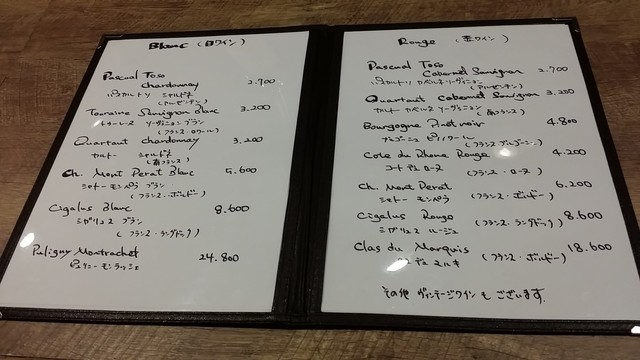 Blanc (白ワイン)
Pascual Toso
Chardonnay 2.700
パスカル・トソ シャルドネ
(アルゼンチン)
Touraine Sauvignon Blanc 3.200
トゥーレーヌ ソーヴィニョン ブラン
(フランス・ロワール)
Quartaut chardonnay 3.200
カルトー シャルドネ
(南フランス)
Ch. Mont Perat Blanc 5.600
シャトー モンペラ ブラン
(フランス・ボルドー)
Cigalus Blanc 8.600
シガリュス ブラン
(フランス・ラングドック)
Puligny Montrachet 24.800
ピュリニー モンラッシェ
Rouge (赤ワイン)
Pascual Toso
Cabernet Sauvignon 2.700
パスカル・トソ カベルネ・ソーヴィニョン
(アルゼンチン)
Quartaut Cabernet Sauvignon 3.200
カルトー カベルネ ソーヴィニョン
(南フランス)
Bourgogne Pinot noir 4.800
ブルゴーニュ ピノノワール
(フランス・ブルゴーニュ)
Cote du Rhone Rouge 4.200
コート デュ ローヌ (フランス・ローヌ)
Ch. Mont Perat 6.200
シャトー モンペラ (フランス・ボルドー)
Cigalus Rouge 8.600
シガリュス ルージュ (フランス・ラングドック)
Clos du Marquis 18.600
デュ マルキ (フランス・ボルドー)
その他 ヴィンテージワインもございます。